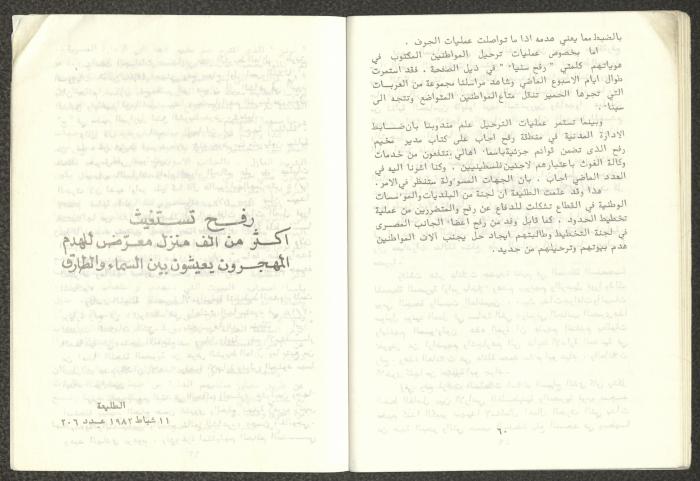 بالضبط مما يعني هدمه اذا ما تواصلت عمليات الجرف .
اما بخصوص عمليات ترحيل المواطنين المكتوب في
هوياتهم كلمتي " رفح سيناء " في ذيل الصفحة . فقد استمرت
طوال ايام الاسبوع الماضي وشاهد مراسلنا مجموعة من العربات
التي تجرها الحمير تنقل متاع المواطنين المتواضع وتتجه الى
سيناء .
وبينما تستمر عمليات الترحيل علم مندوبنا بأن ضابط
الادارة المدنية في منطقة رفح اجاب على كتاب مدير مخيم
رفح الذى تضمن قوائم جزئية باسماء اهالي ينتفعون من خدمات
وكالة الغوث باعتبارهم لاجئين فلسطينيين . وكنا اشرنا اليه في
العدد الماضي اجاب . بان الجهات المسوءولة ستنظر في الامر .
هذا وقد علمت الطليعة ان لجنة من البلديات والموءسسات
الوطنية في القطاع تشكلت للدفاع عن رفح والمتضررين من عملية
تخطيط الحدود . كما قابل وفد من رفح اعضاء الجانب المصرى
في لجنة التخطيط وطالبتهم ايجاد حل يجنب آلاف المواطنين
هدم بيوتهم وترحيلهم من جديد .
٦٠
رفح تستغيث
اكثر من الف منزل معرّض للهدم
المهجرون يعيشون بين السماء والطارق
الطليعة
١١ شباط ١٩٨٢ عدد ٢٠٦